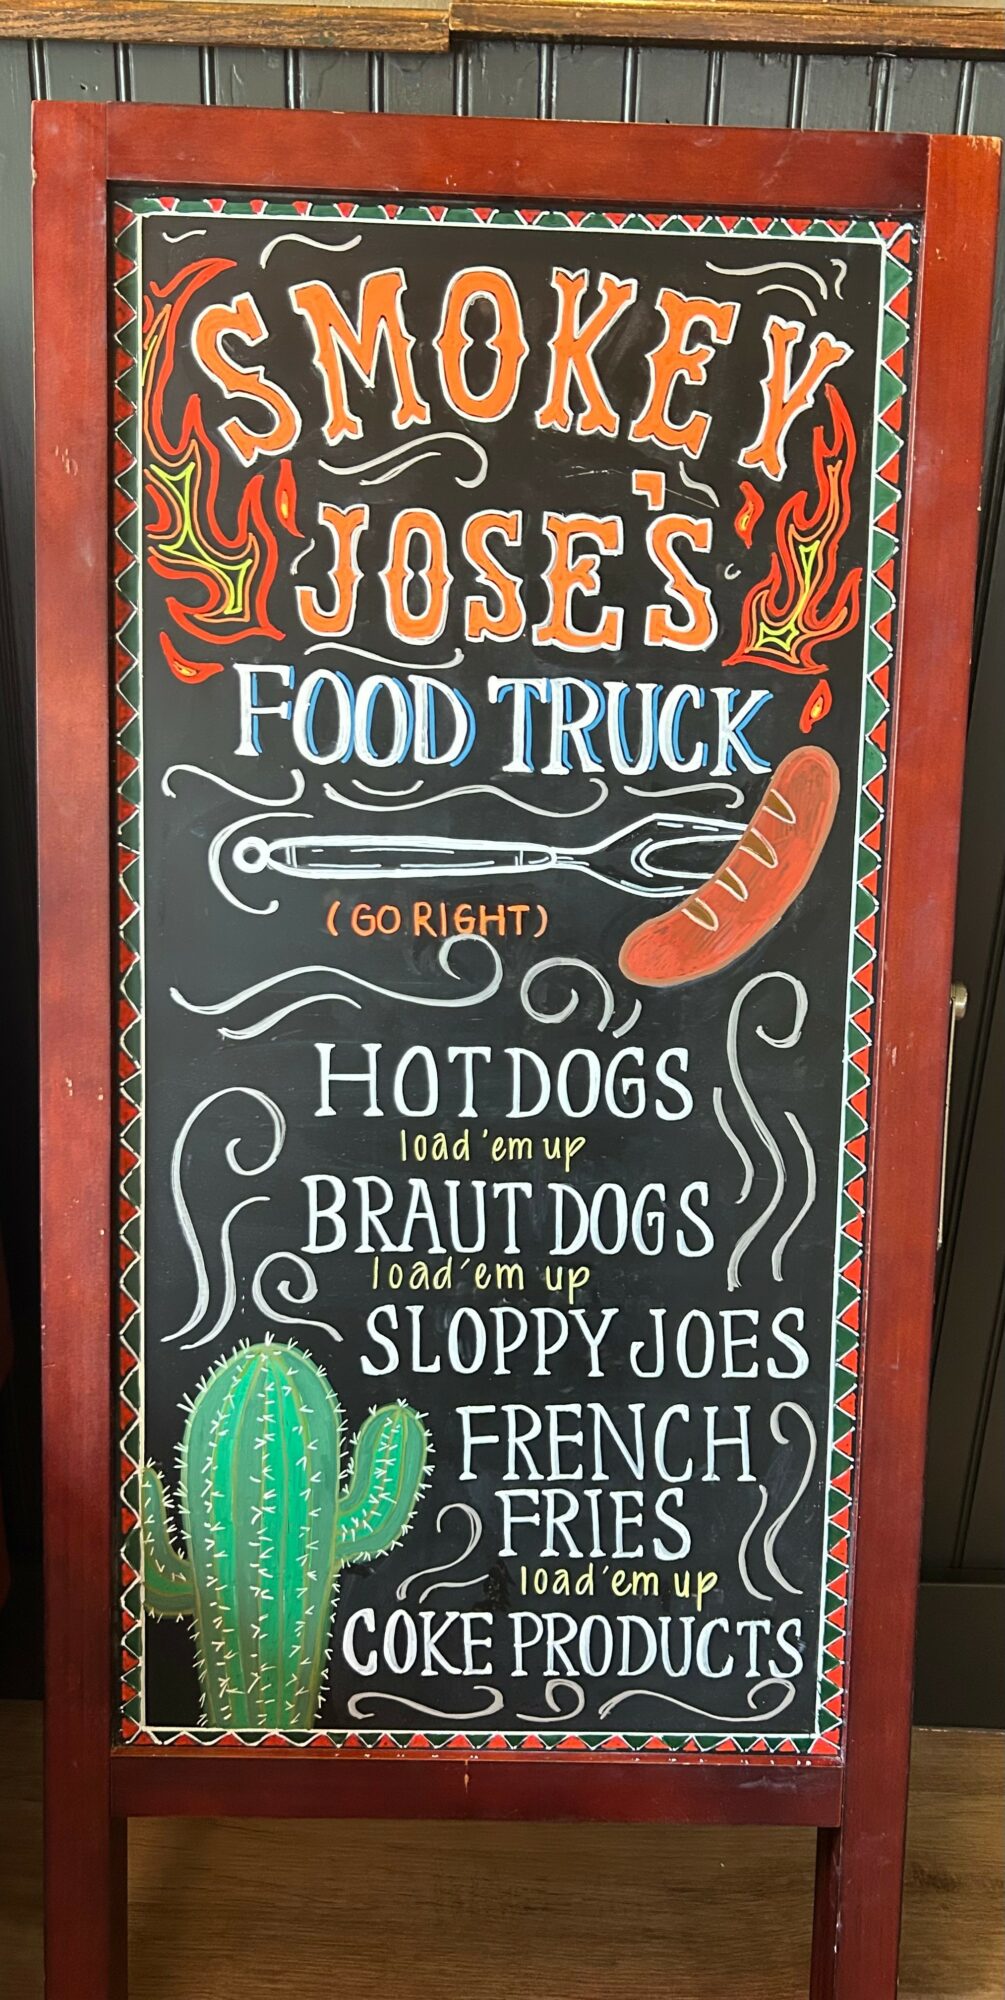 SMOKEY
JOSE'S
FOOD TRUCK
(GO RIGHT)
HOT DOGS
load 'em up
BRAUT DOGS
load 'em up
SLOPPY JOES
FRENCH
FRIES
load 'em up
COKE PRODUCTS